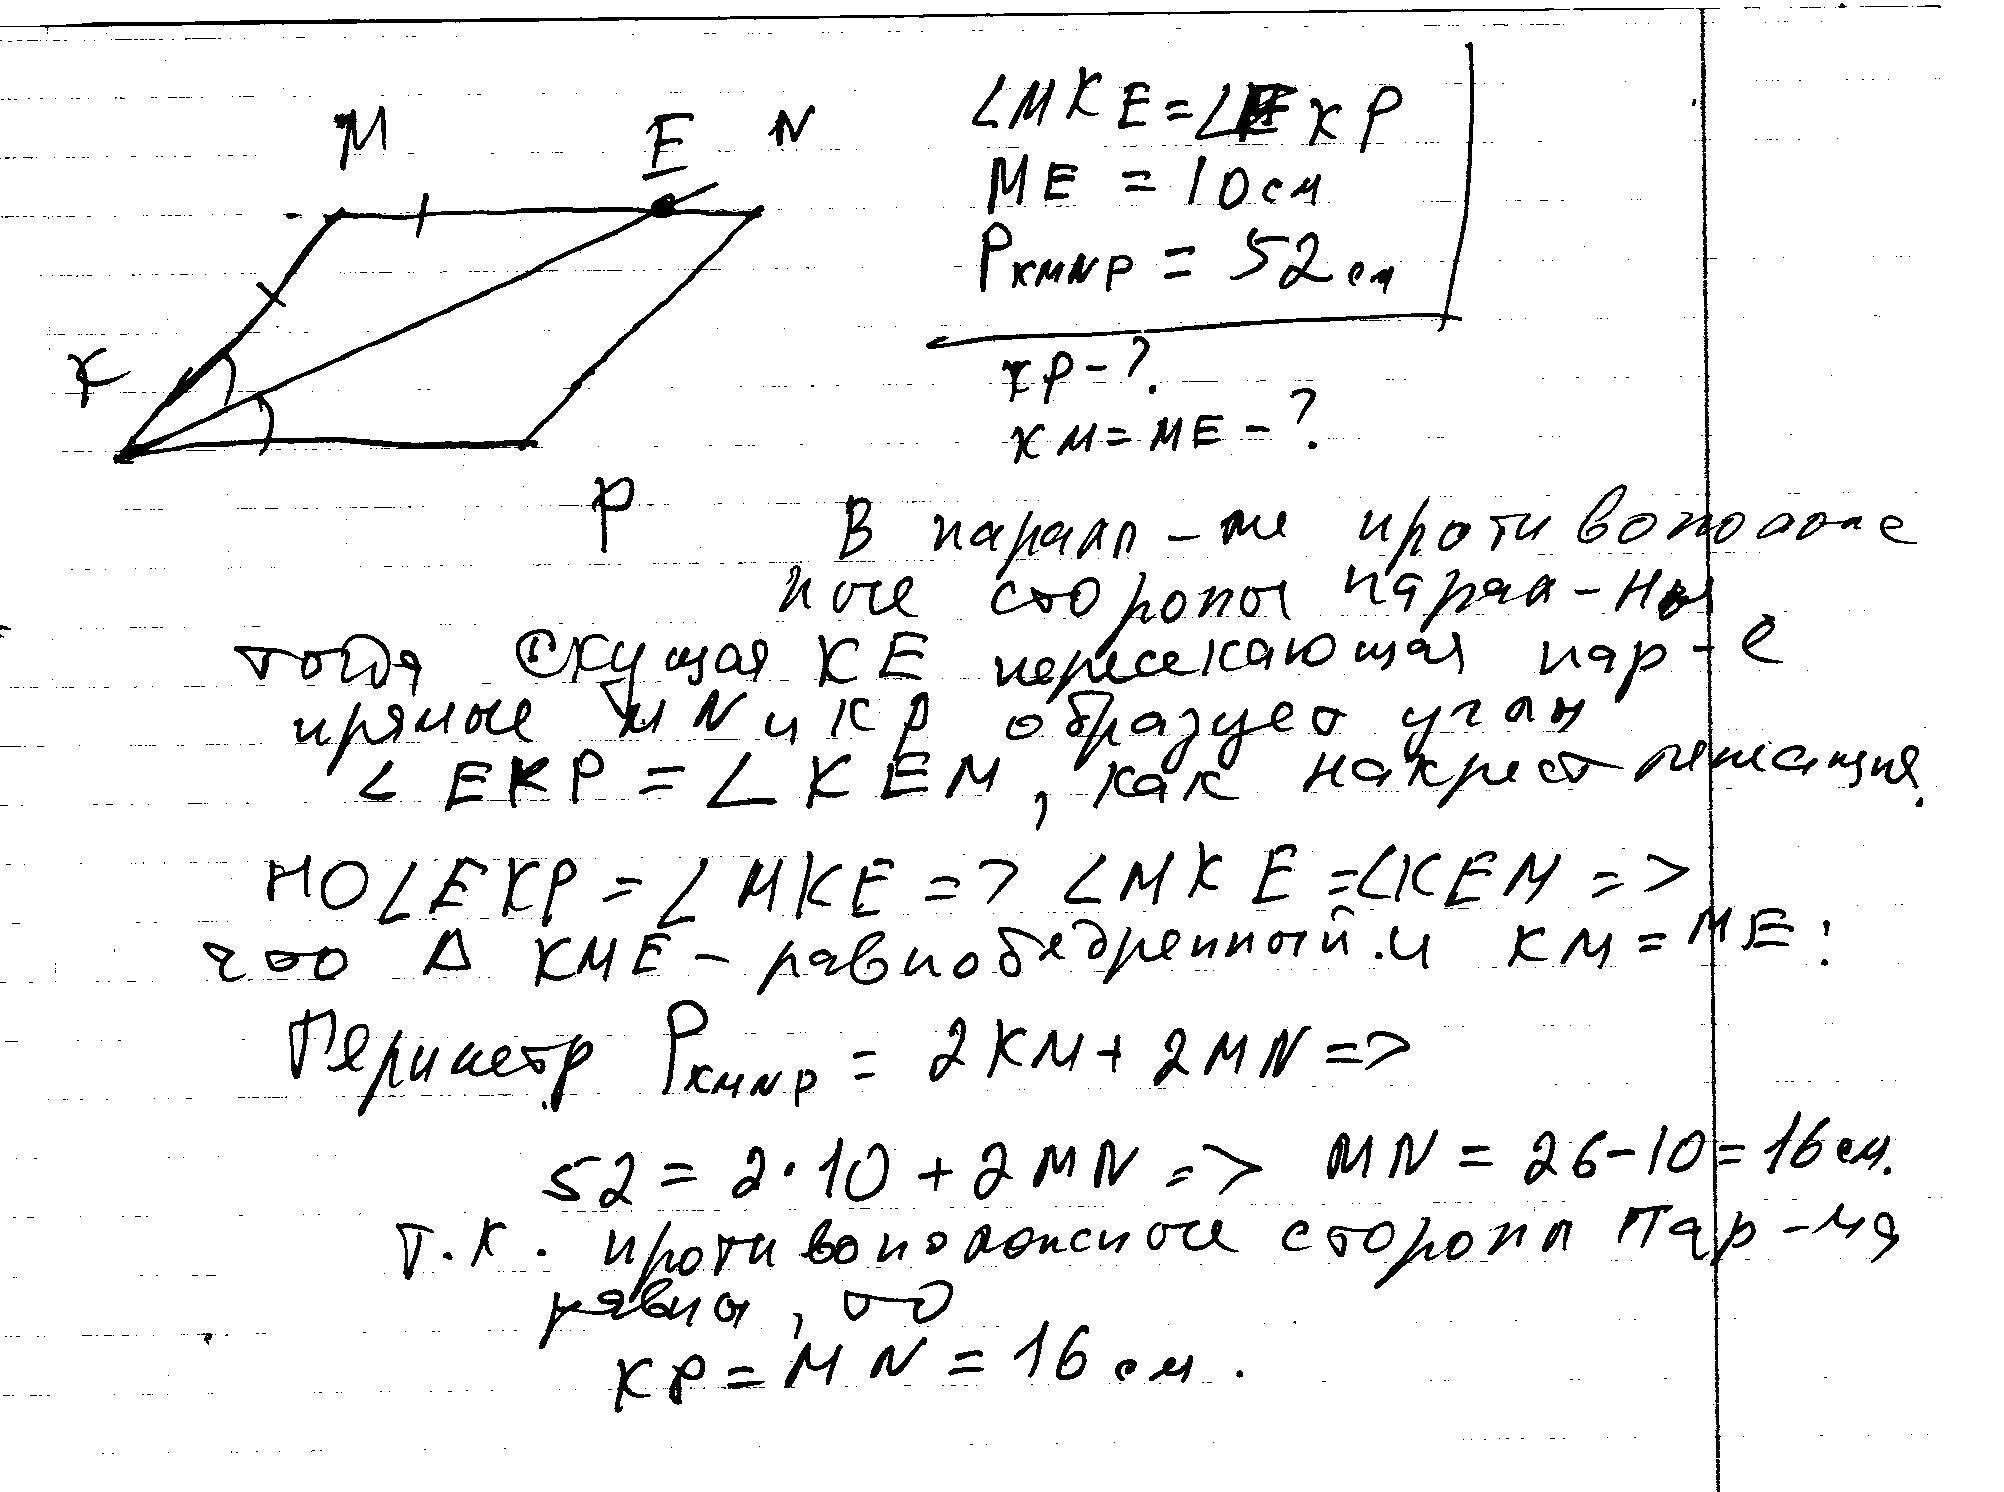 M E N
∠MKE = ∠EKP
ME = 10 см
P KMNP = 52 см
K
KP - ?
KM = ME - ?
P
В паралл-ме противополож
ные стороны парал-ны
тогда секущая KE пересекающая пар-е
прямые MN и KP образует углы
∠EKP = ∠KEM, как накрест лежащия.
НО ∠EKP = ∠MKE => ∠MKE = ∠KEM =>
что Δ KME - равнобедренный и KM = ME:
Периметр P KMNP = 2KM + 2MN =>
52 = 2·10 + 2MN => MN = 26-10 = 16 см.
Т.к. противоположные стороны пар-ма
равны, то
KP = MN = 16 см.